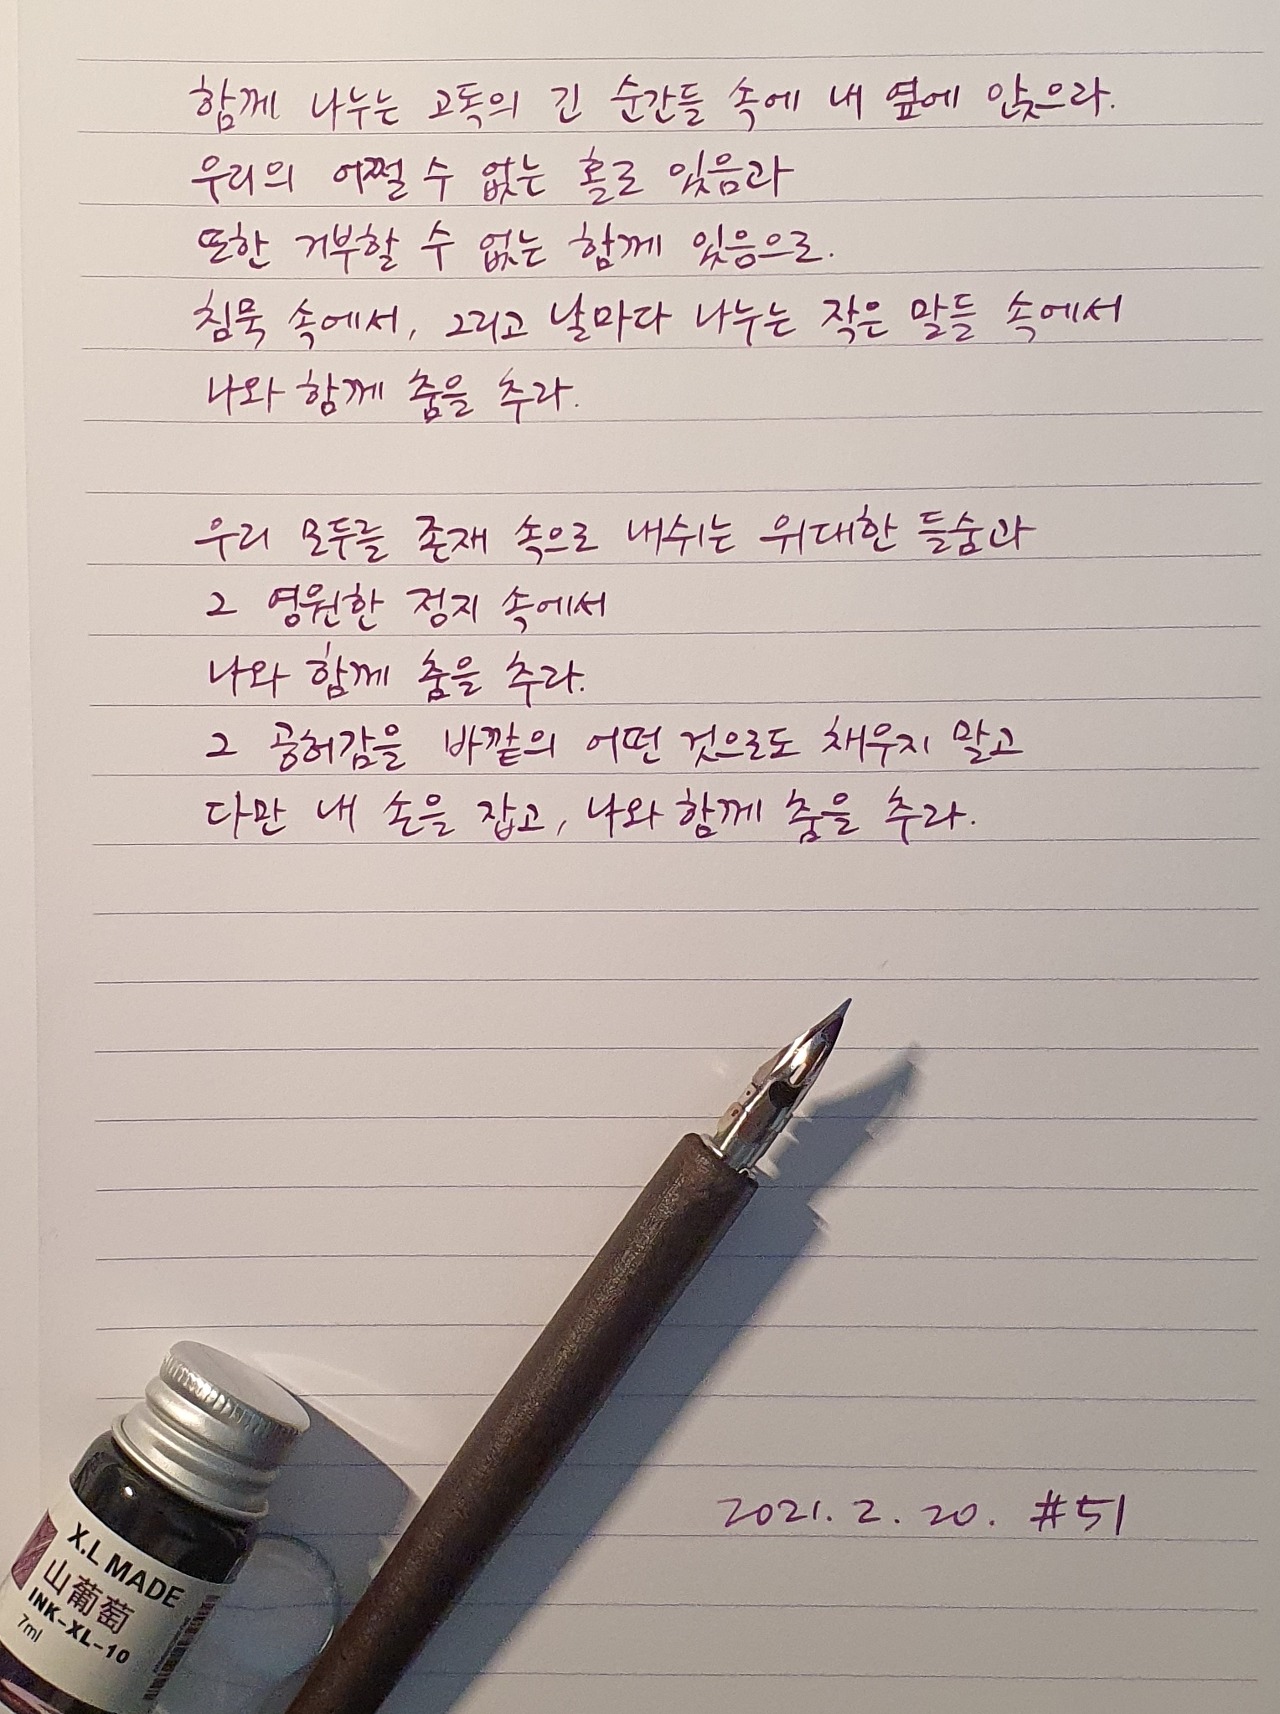 함께 나누는 고독의 긴 순간들 속에 내 옆에 앉으라.
우리의 어쩔 수 없는 홀로 있음과
또한 거부할 수 없는 함께 있음으로.
침묵 속에서, 그리고 날마다 나누는 작은 말들 속에서
나와 함께 춤을 추라.
우리 모두를 존재 속으로 내쉬는 위대한 들숨과
그 영원한 정지 속에서
나와 함께 춤을 추라.
그 공허감을 바깥의 어떤 것으로도 채우지 말고
다만 내 손을 잡고, 나와 함께 춤을 추라.
2021. 2. 20. #51
X.L MADE
山葡萄
INK-XL-10
7ml